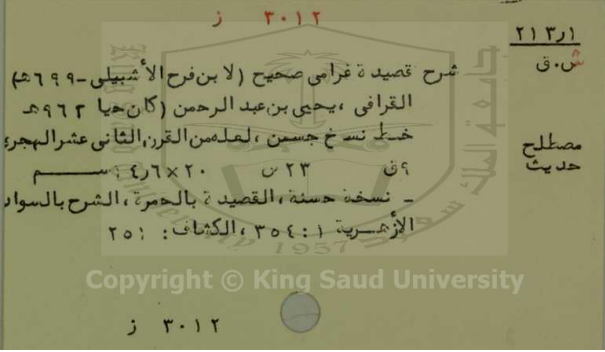 ٣٠١٢ ز
٢١٣٫١
ش.ق
شرح قصيدة غرامى صحيح (لابن فرح الأشبيلى - ٦٩٩ هـ)
القرافى ، يحيى بن عبد الرحمن (كان حيا ٩٦٢ هـ
خط نسخ حسن ، لعله من القرن الثانى عشر الهجرى
مصطلح
حديث
٩ق ٢٣ س ٢٠×١٤٫٦ سم
- نسخة حسنة ، القصيدة بالحمرة ، الشرح بالسواد
الأزهرية ١ : ٣٥٤ ، الكشاف : ٢٥١
1957
Copyright © King Saud University
٣٠١٢ ز